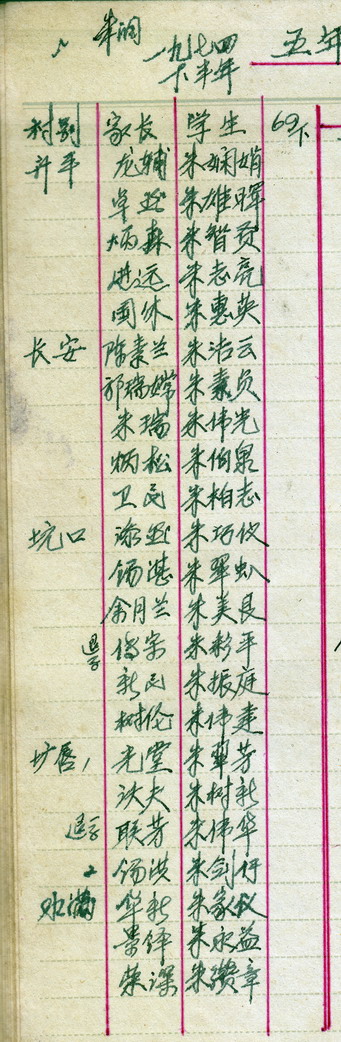 朱润
一九七四 五年
下半年
村别 家长 学生 69下
升平 龙辅 朱娴娟
卓 朱雄晖
炳森 朱智
进远 朱志亮
国休 朱惠英
长安 陈素兰 朱洁云
邓瑞嫦 朱素贞
朱瑞 朱伟光
炳松 朱伯泉
卫民 朱柏志
坑口 添 朱巧仪
锡湛 朱翠
余月兰 朱美良
退学 传宗 朱彩平
新民 朱振庭
树伦 朱伟建
圹唇 光堂 朱翠芳
夫 朱树新
退学 联芳 朱伟华
锡洪 朱剑
水满 华新 朱家仪
景铎 朱永益
荣深 朱缵章